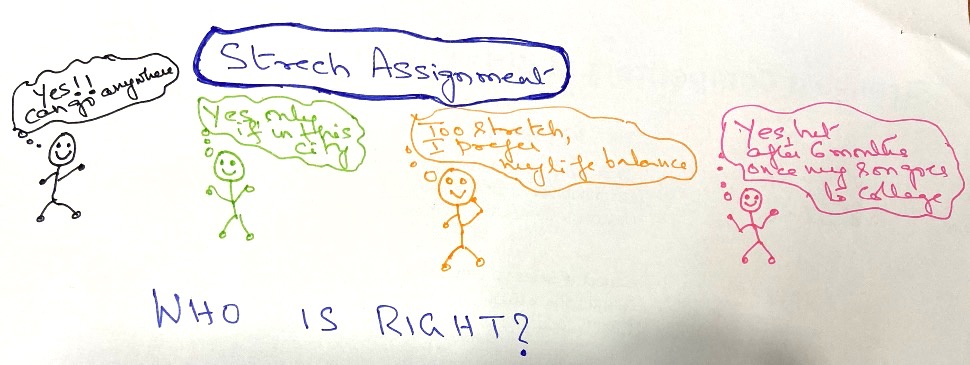 Strech Assignment
Yes!!
can go anywhere
Yes, only
if in this
city
Too stretch,
I prefer
my life balance
Yes, but
after 6 months
once my son goes
to college
WHO IS RIGHT?